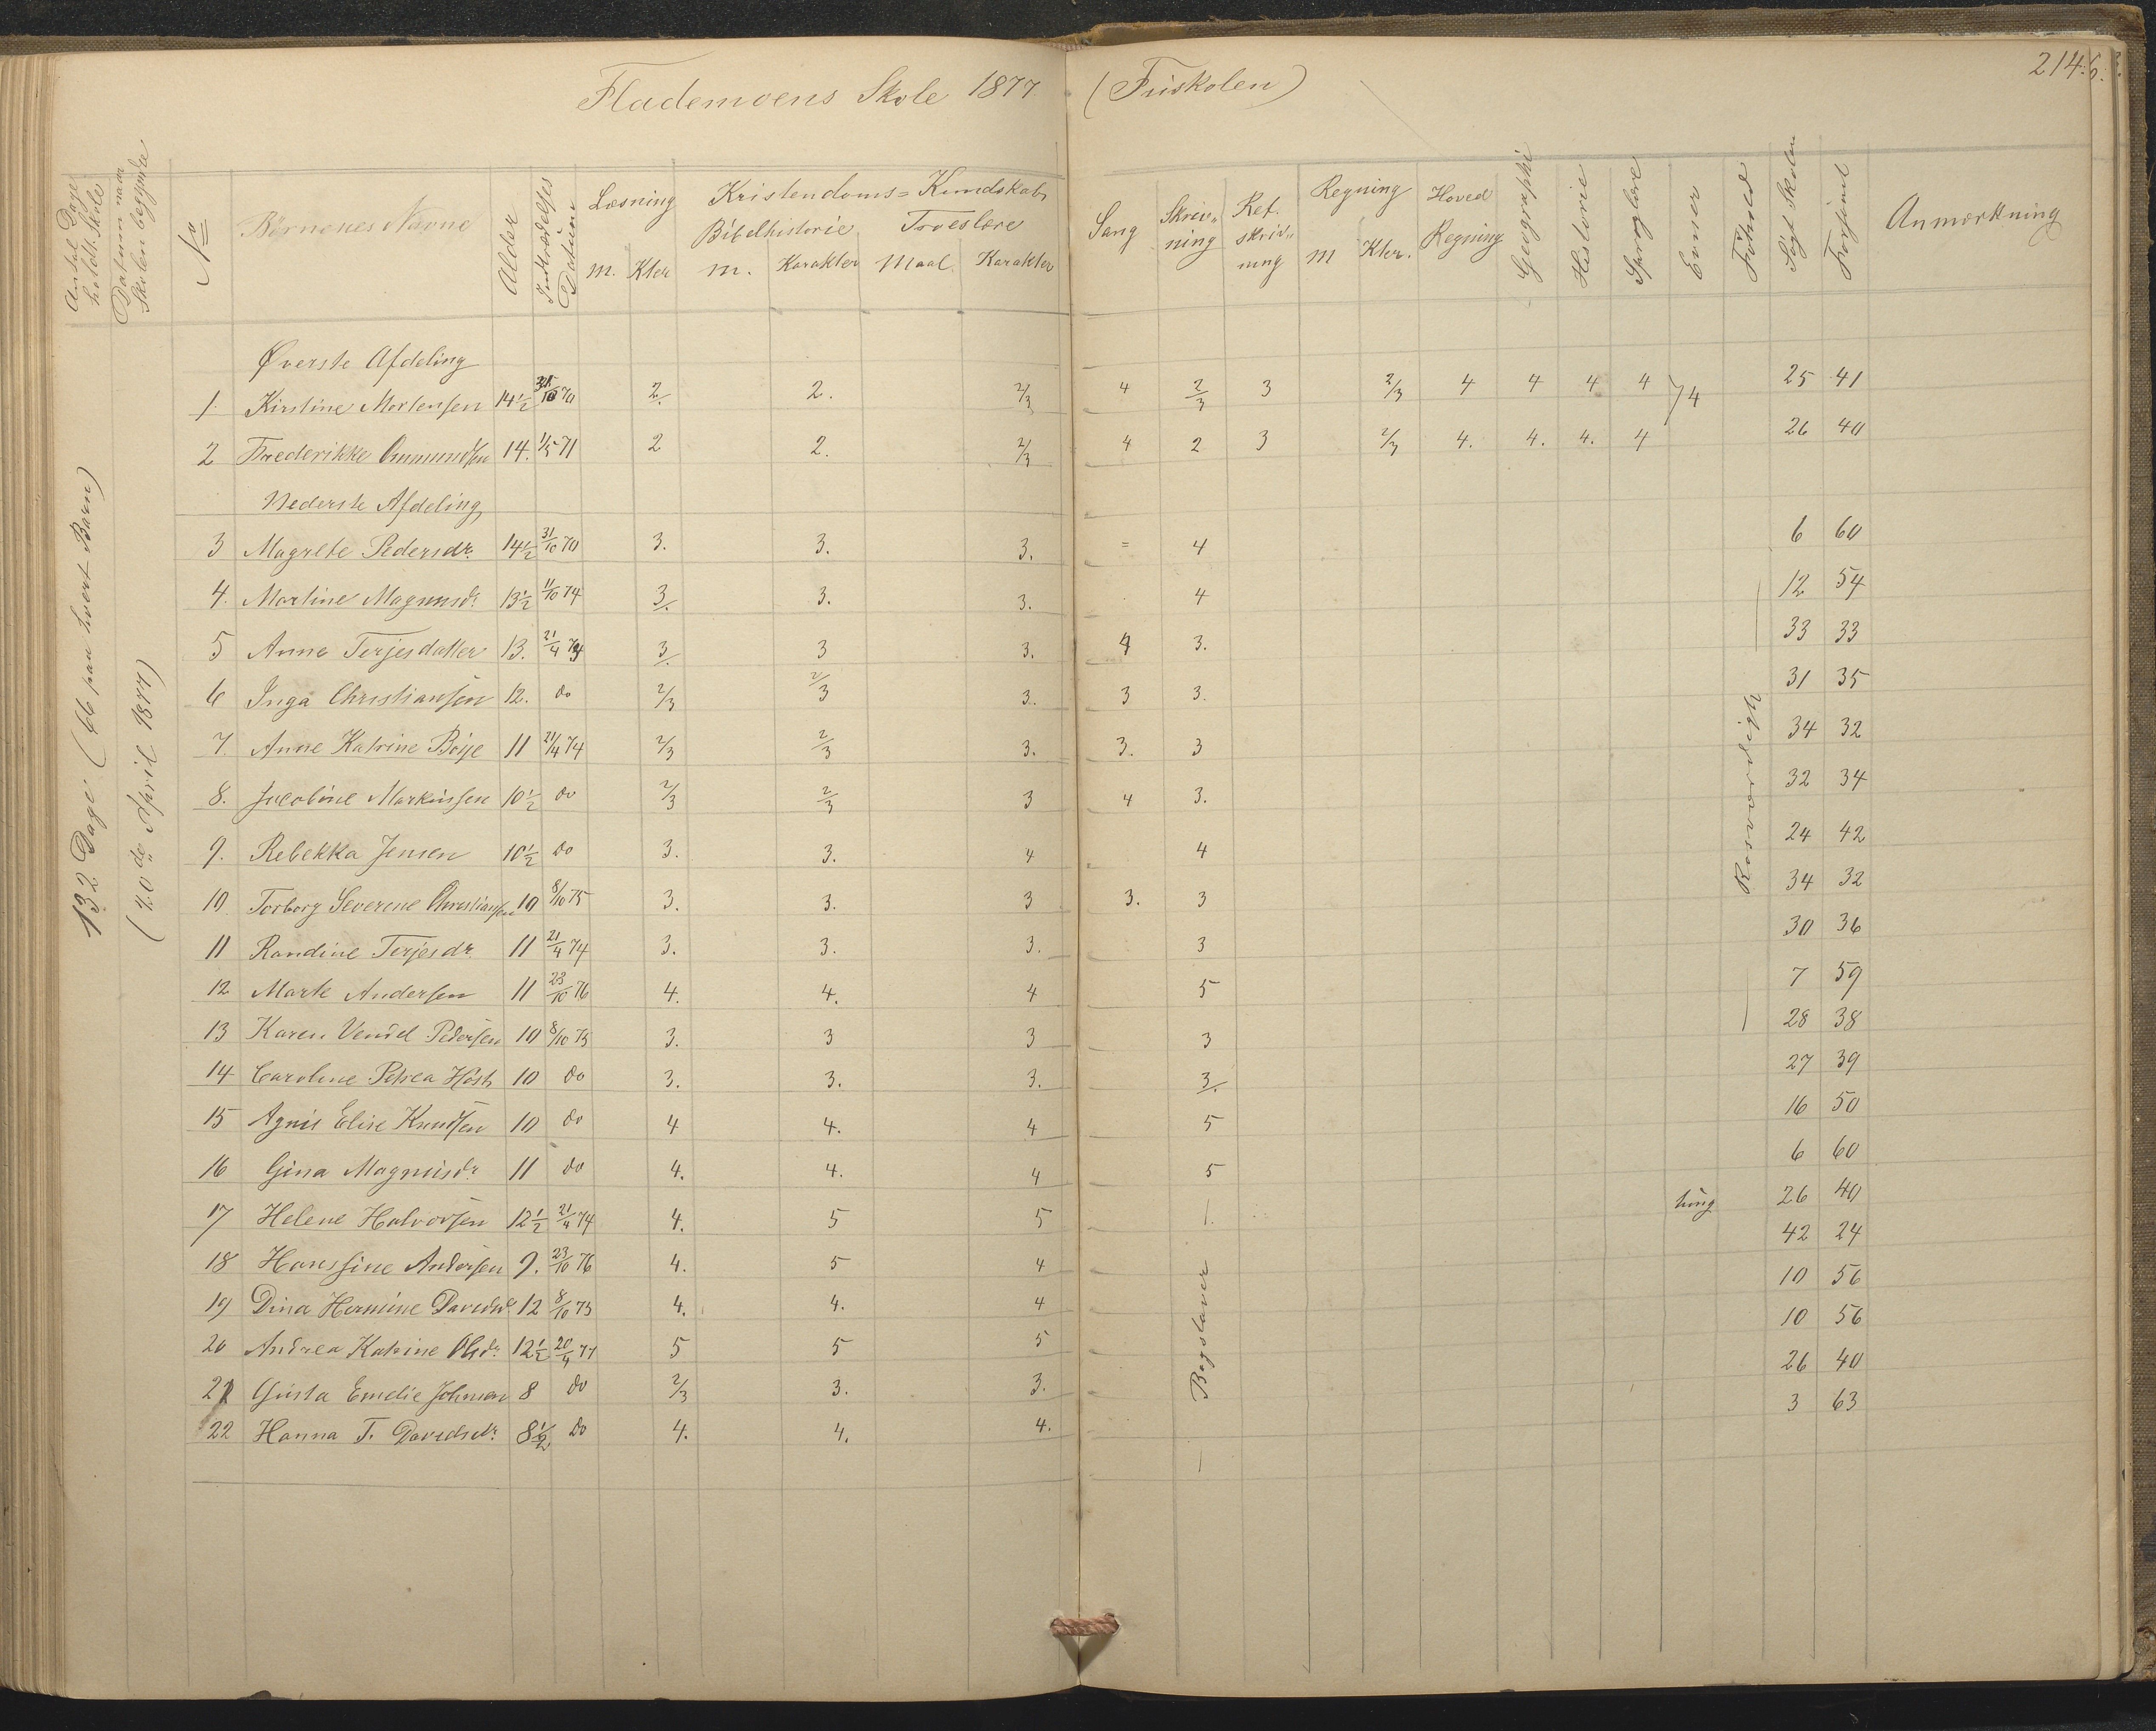 Flademoens Skole 1877 (Friskolen)
214.
Antal Dage holdt Skole
Datum naar Skolen begyndte
No
Børnenes Navne
Alder
Indtrædelses Datum
Læsning
m. Kter
Kristendoms= Kundskab
Bibelhistorie
m. Karakter
Troeslære
Maal. Karakter
Sang
Skriv„ning
Ret. skriv„ning
Regning
m Kter.
Hoved Regning
Geographi
Historie
Sproglære
Evner
Forhold
Søgt Skolen
Forsømt
Anmærkning
132 Dage. (66 paa hvert Barn)
April 1877)
Øverste Afdeling
1. Kirstine Mortensen 14½ 31/10 70 2. 2. 2/3 4 2/3 3 2/3 4 4 4 4 }4 25 41
2 Frederikke 14. 1/5 71 2 2. 2/3 4 2 3 2/3 4. 4. 4. 4 26 40
Nederste Afdeling
3 Magrete Pedersdr. 14½ 31/10 70 3. 3. 3. = 4 6 60
4. Martine Magnusdr. 13½ 11/10 74 3. 3. 3. 4 12 54
5 Anne Terjesdatter 13. 21/4 74 3. 3 3. 4 3. 33 33
6 Inga Christiansen 12. do 2/3 2/3 3. 3 3. 31 35
7. Anne Katrine Boije 11 21/4 74 2/3 2/3 3. 3. 3 34 32
8. Jacobine Markussen 10½ do 2/3 2/3 3 4 3. 32 34
9. Rebekka Jensen 10½ do 3. 3. 4 4 24 42
10. Torborg Severene Christiansen 10 8/10 75 3. 3. 3 3. 3 34 32
11 Randine Terjesdr. 11 21/4 74 3. 3. 3. 3 30 36
12 Marte Andersen 11 23/10 76 4. 4. 4 5 7 59
13 Karen Vendel Pedersen 10 8/10 75 3. 3 3 3 28 38
14 Caroline Petrea Høst 10 do 3. 3. 3. 3. 27 39
15 Agnis Elise Knudsen 10 do 4 4. 4 5 16 50
16 Gina Magnusdr. 11 do 4. 4. 4 5 6 60
17 Helene Halvorsen 12½ 21/4 74 4. 5 5 ring 26 40
18 Hanssine Andersen 9. 23/10 76 4. 5 4 42 24
19 Dina Hermine Davidsdr. 12 8/10 75 4. 4. 4 10 56
20 Andrea Katrine Olsdr. 12½ 20/4 77 5 5 5 10 56
21 Gusta Emelie Johnsen 8 do 2/3 3. 3. 26 40
22 Hanna T. Davidsdr. 8½ do 4. 4. 4. 3 63
— Bogstaver —
— Rosværdigt —